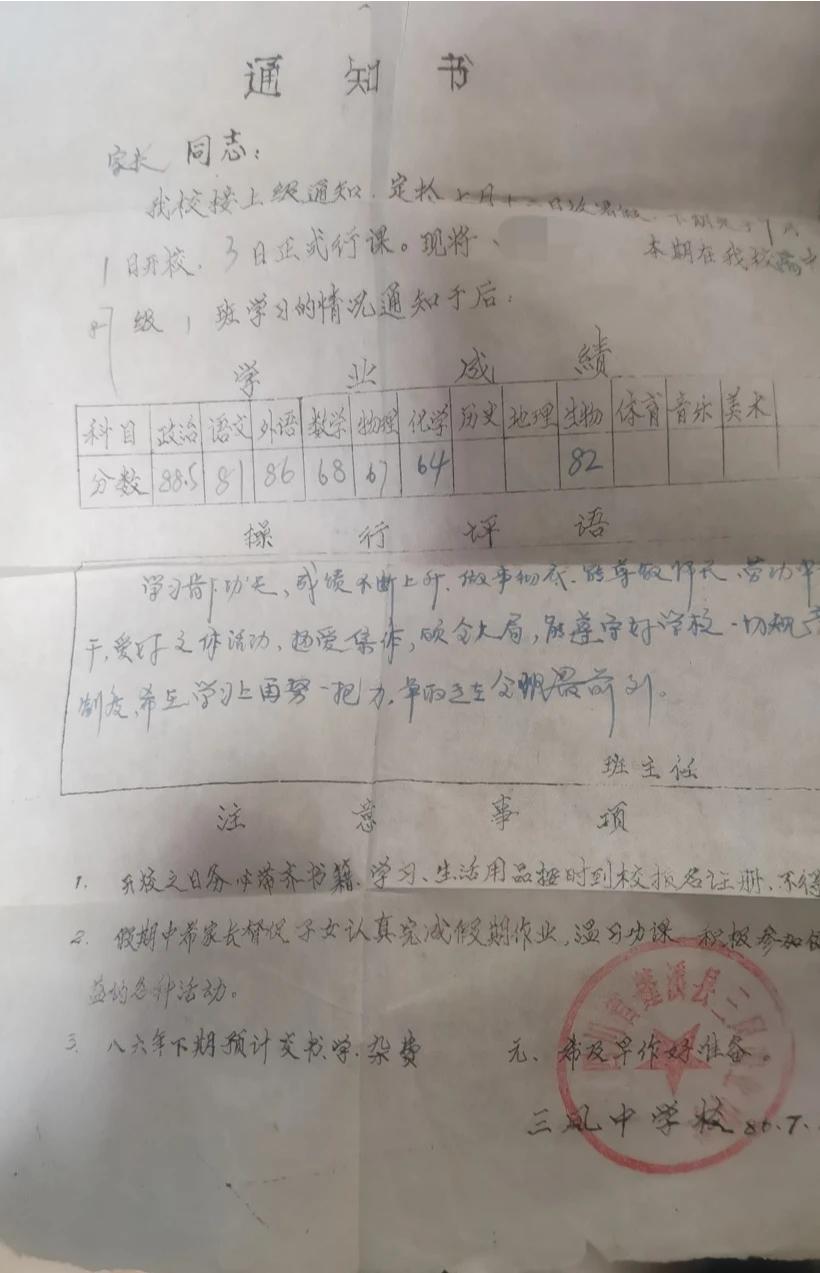 通知书
家长 同志：
我校接上级通知，定於七月十二日放暑假，下期定于9月
1日开校，3日正式行课。现将
本期在我校高中
级1班学习的情况通知于后：
学业成績
科目 政治 语文 外语 数学 物理 化学 历史 地理 生物 体育 音乐 美术
分数 88.5 81 86 68 67 64 82
操行评语
学习肯下功夫，成绩不断上升，做事彻底，能尊敬师长，劳动
干，爱好文体活动，热爱集体，顾全大局，能遵守好学校一切规章
制度，希在学习上再努一把力，争取走在全班最前列。
班主任
注意事项
1. 开校之日务必带齐书籍、学习、生活用品按时到校报名注册，不得
2. 假期中希家长督促子女认真完成假期作业，温习功课 积极参加
益的各种活动。
3. 八六年下期预计交书学、杂费 元、希及早作好准备。
三凤中学校 86.7.
四川省蓬溪县三凤